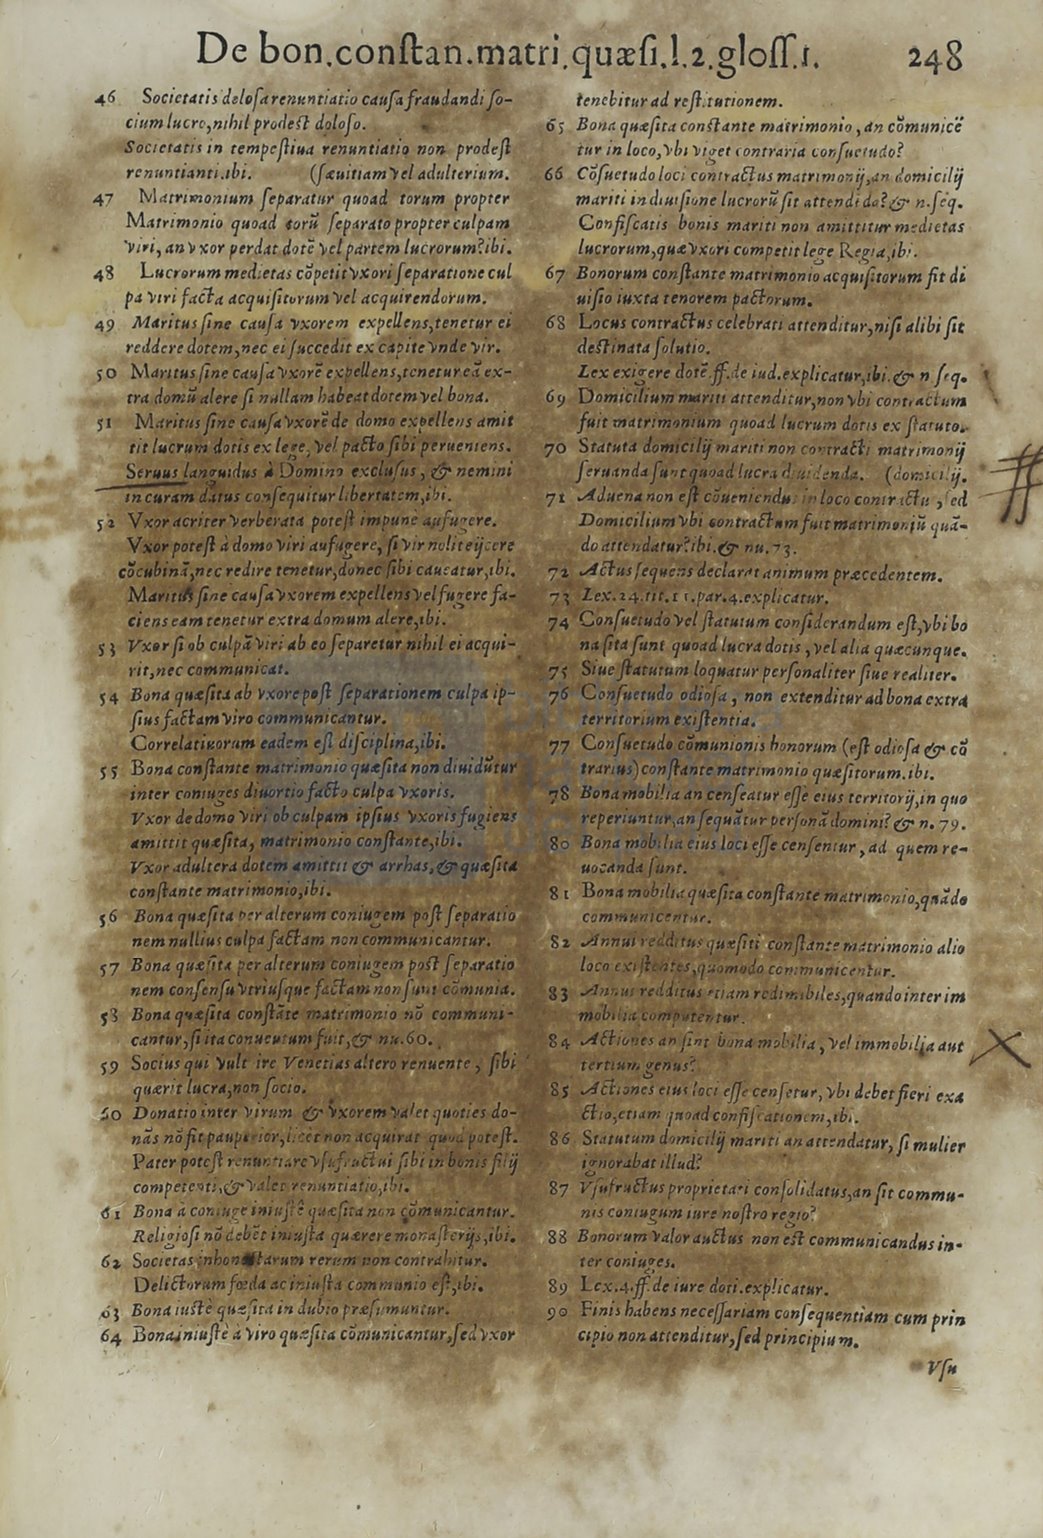 De bon.constan.matri.quæsi.l.2.gloss.1. 248
46 Societatis dolosa renuntiatio causa fraudandi so-
cium lucro, nihil prodest doloso.
Societatis in tempestiua renuntiatio non prodest
renuntianti.ibi. (sæuitiam vel adulterium.
47 Matrimonium separatur quoad torum propter
Matrimonio quoad torū separato propter culpam
viri, an vxor perdat dotē vel partem lucrorum? ibi.
48 Lucrorum medietas cōpetit vxori separatione cul
pa viri facta acquisitorum vel acquirendorum.
49 Maritus sine causa vxorem expellens, tenetur ei
reddere dotem, nec ei succedit ex capite vnde vir.
50 Maritus sine causa vxorē expellens, tenetur eā ex-
tra domū alere si nullam habeat dotem vel bona.
51 Maritus sine causa vxorē de domo expellens amit
tit lucrum dotis ex lege, vel pacto sibi perueniens.
Seruus languidus à Domino exclusus, & nemini
in curam datus consequitur libertatem, ibi.
52 Vxor acriter verberata potest impunè aufugere.
Vxor potest à domo viri aufugere, si vir nolit eijcere
cōcubinā, nec redire tenetur, donec sibi caueatur, ibi.
Maritus sine causa vxorem expellens vel fugere fa-
ciens eam tenetur extra domum alere, ibi.
53 Vxor si ob culpā viri ab eo separetur nihil ei acqui-
rit, nec communicat.
54 Bona quæsita ab vxore post separationem culpa ip-
sius factam viro communicantur.
Correlatiuorum eadem est disciplina, ibi.
55 Bona constante matrimonio quæsita non diuidūtur
inter coniuges diuortio facto culpa vxoris.
Vxor de domo viri ob culpam ipsius vxoris fugiens
amittit quæsita, matrimonio constante, ibi.
Vxor adultera dotem amittit & arrhas, & quæsita
constante matrimonio, ibi.
56 Bona quæsita per alterum coniugem post separatio
nem nullius culpa factam non communicantur.
57 Bona quæsita per alterum coniugem post separatio
nem consensu vtriusque factam non sunt cōmunia.
58 Bona quæsita constāte matrimonio nō communi-
cantur, si ita conuentum fuit, & nu. 60.
59 Socius qui vult ire Venetias altero renuente, sibi
quærit lucra, non socio.
60 Donatio inter virum & vxorem valet quoties do-
nās nō fit pauperior, licèt non acquirat quod potest.
Pater potest renuntiare vsufructui sibi in bonis filij
competenti, & valet renuntiatio, ibi.
61 Bona à coniuge iniustè quæsita non cōmunicantur.
Religiosi nō debēt iniusta quærere monasterijs, ibi.
62 Societas inhonestarum rerum non contrahitur.
Delictorum fœda ac iniusta communio est, ibi.
63 Bona iustè quæsita in dubio præsumuntur.
64 Bona iniustè à viro quæsita cōmunicantur, sed vxor
tenebitur ad restitutionem.
65 Bona quæsita constante matrimonio, an cōmunicē
tur in loco, vbi viget contraria consuetudo?
66 Cōsuetudo loci contractus matrimonij, an domicilij
mariti in diuisione lucrorū sit attendēda? & n. seq.
Confiscatis bonis mariti non amittitur medietas
lucrorum, quæ vxori competit lege Regia, ibi.
67 Bonorum constante matrimonio acquisitorum fit di
uisio iuxta tenorem pactorum.
68 Locus contractus celebrati attenditur, nisi alibi sit
destinata solutio.
Lex exigere dotē. ff. de iud. explicatur, ibi. & n seq.
69 Domicilium mariti attenditur, non vbi contractum
fuit matrimonium quoad lucrum dotis ex statuto.
70 Statuta domicilij mariti non contracti matrimonij
seruanda sunt quoad lucra diuidenda. (domicilij.
71 Aduena non est cōueniendus in loco contractu, sed
Domicilium vbi contractum fuit matrimoniū quā-
do attendatur? ibi. & nu. 73.
72 Actus sequens declarat animum præcedentem.
73 Lex. 24. tit. 11. par. 4. explicatur.
74 Consuetudo vel statutum considerandum est, vbi bo
na sita sunt quoad lucra dotis, vel alia quæcunque.
75 Siue statutum loquatur personaliter siue realiter.
76 Consuetudo odiosa, non extenditur ad bona extra
territorium existentia.
77 Consuetudo cōmunionis bonorum (est odiosa & cō
trarius) constante matrimonio quæsitorum. ibi.
78 Bona mobilia an censeatur esse eius territorij, in quo
reperiuntur, an sequātur personā domini? & n. 79.
80 Bona mobilia eius loci esse censentur, ad quem re-
uocanda sunt.
81 Bona mobilia quæsita constante matrimonio, quādo
communicentur.
82 Annui redditus quæsiti constante matrimonio alio
loco existentes, quomodo communicentur.
83 Annui redditus etiam redimibiles, quando inter im
mobilia computentur.
84 Actiones an sint bona mobilia, vel immobilia aut
tertium genus?
85 Actiones eius loci esse censetur, vbi debet fieri exa
ctio, etiam quoad confiscationem, ibi.
86 Statutum domicilij mariti an attendatur, si mulier
ignorabat illud?
87 Vsufructus proprietati consolidatus, an sit commu-
nis coniugum iure nostro regio?
88 Bonorum valor auctus non est communicandus in-
ter coniuges.
89 Lex. 4. ff. de iure doti. explicatur.
90 Finis habens necessariam consequentiam cum prin
cipio non attenditur, sed principium.
Vsu